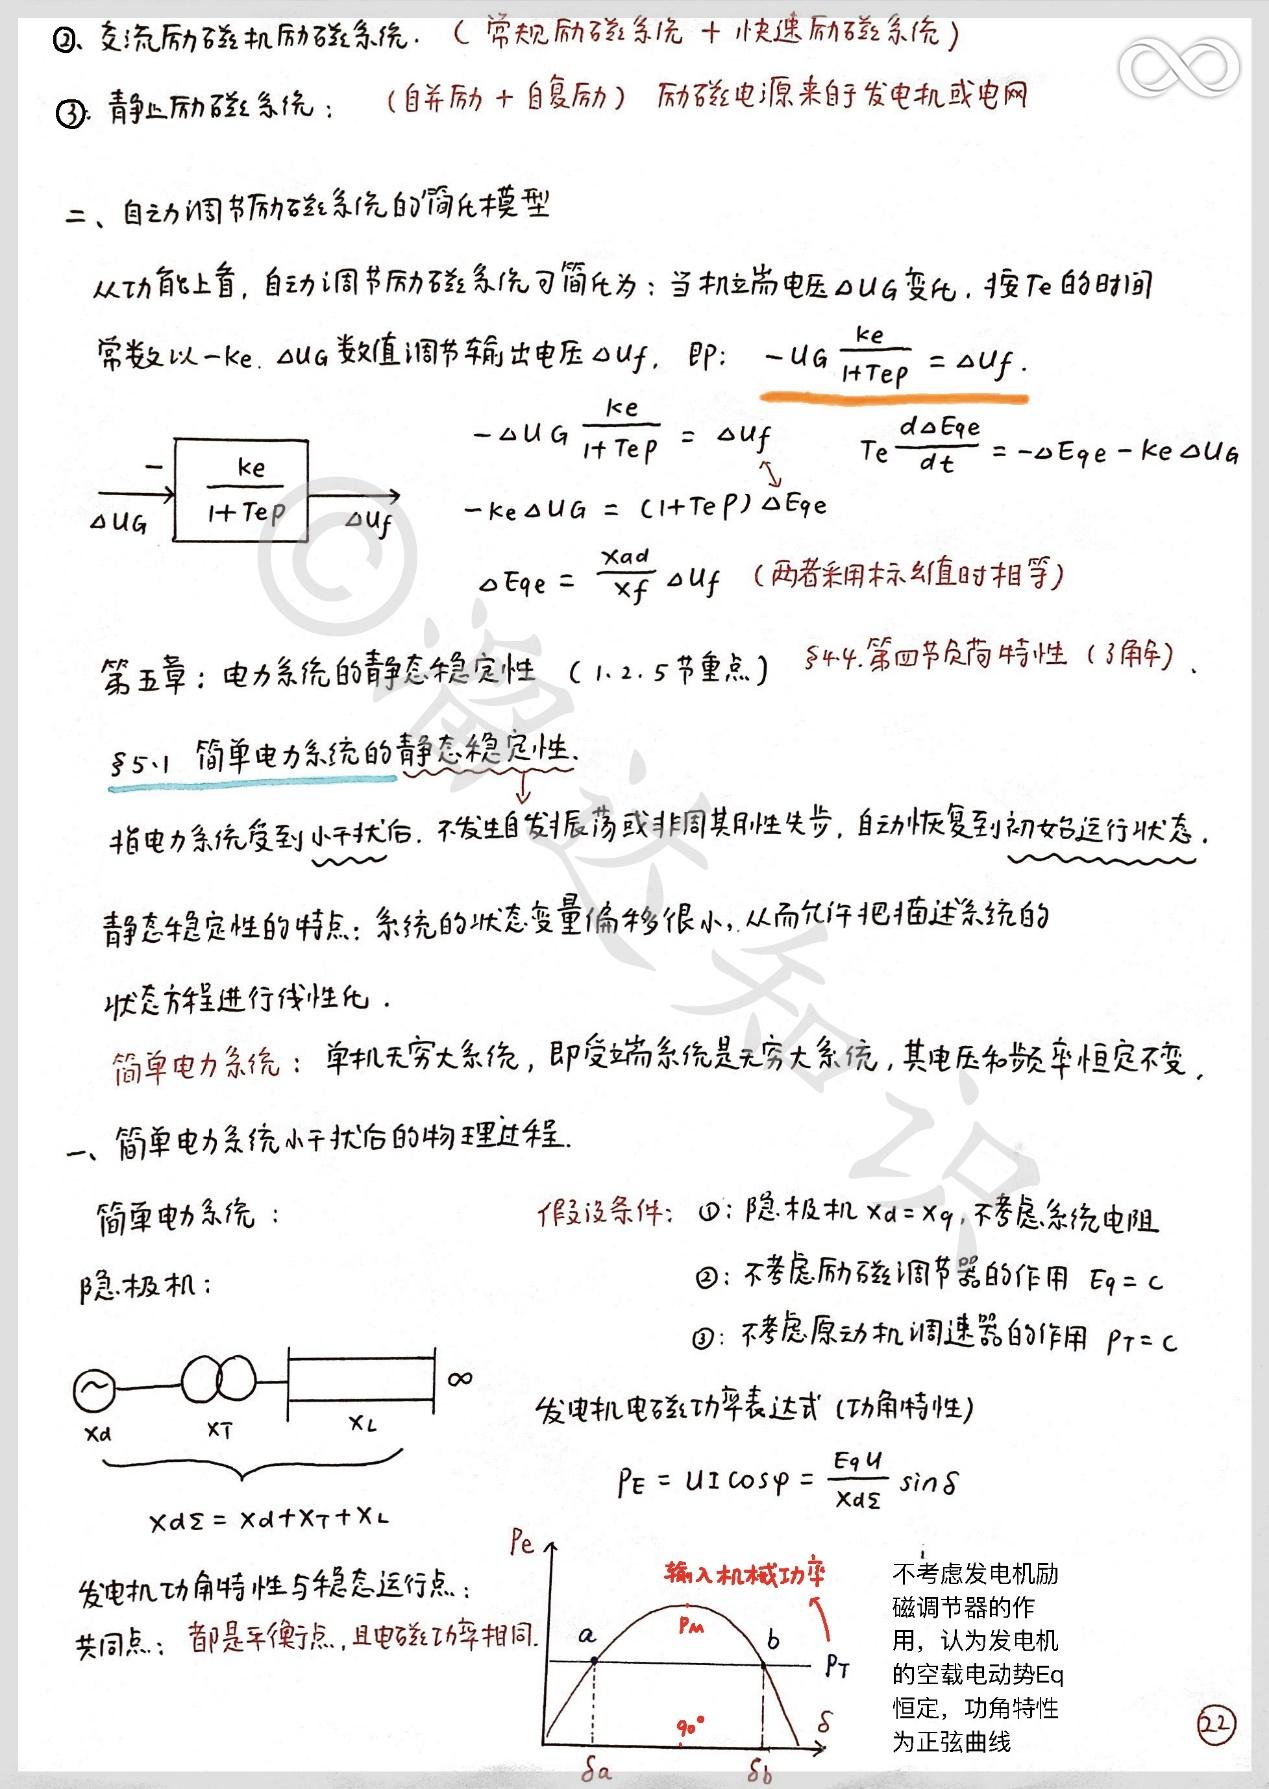 ②、交流励磁机励磁系统.（常规励磁系统 + 快速励磁系统）
③. 静止励磁系统：（自并励 + 自复励） 励磁电源来自于发电机或电网
二、自动调节励磁系统的简化模型
从功能上看，自动调节励磁系统可简化为：当机端电压△UG变化，按Te的时间
常数以-Ke. △UG数值调节输出电压△Uf， 即： -UG ke/(1+Tep) = △Uf.
-△UG ke/(1+Tep) = △Uf
Te d△Eqe/dt = -△Eqe - Ke△UG
- ke/(1+Tep)
△UG △Uf
-Ke△UG = (1+Tep) △Eqe
△Eqe = Xad/Xf △Uf （两者采用标幺值时相等）
第五章：电力系统的静态稳定性 （1.2.5节重点） §4.4.第四节负荷特性（了解）.
§5.1 简单电力系统的静态稳定性.
指电力系统受到小干扰后，不发生自发振荡或非周期性失步，自动恢复到初始运行状态.
静态稳定性的特点：系统的状态变量偏移很小，从而允许把描述系统的
状态方程进行线性化.
简单电力系统：单机无穷大系统，即受端系统是无穷大系统，其电压和频率恒定不变.
一、简单电力系统小干扰后的物理过程.
简单电力系统：
假设条件：①：隐极机 Xd=Xq，不考虑系统电阻
②：不考虑励磁调节器的作用 Eq=C
隐极机：
③：不考虑原动机调速器的作用 PT=C
∞
Xd XT XL
发电机电磁功率表达式（功角特性）
PE = UIcosφ = EqU/XdΣ sinδ
XdΣ = Xd+XT+XL
发电机功角特性与稳态运行点：
共同点：都是平衡点，且电磁功率相同.
Pe
输入机械功率
PM
a b
PT
90°
δ
δa δb
不考虑发电机励
磁调节器的作
用，认为发电机
的空载电动势Eq
恒定，功角特性
为正弦曲线
22
©瀚达知识